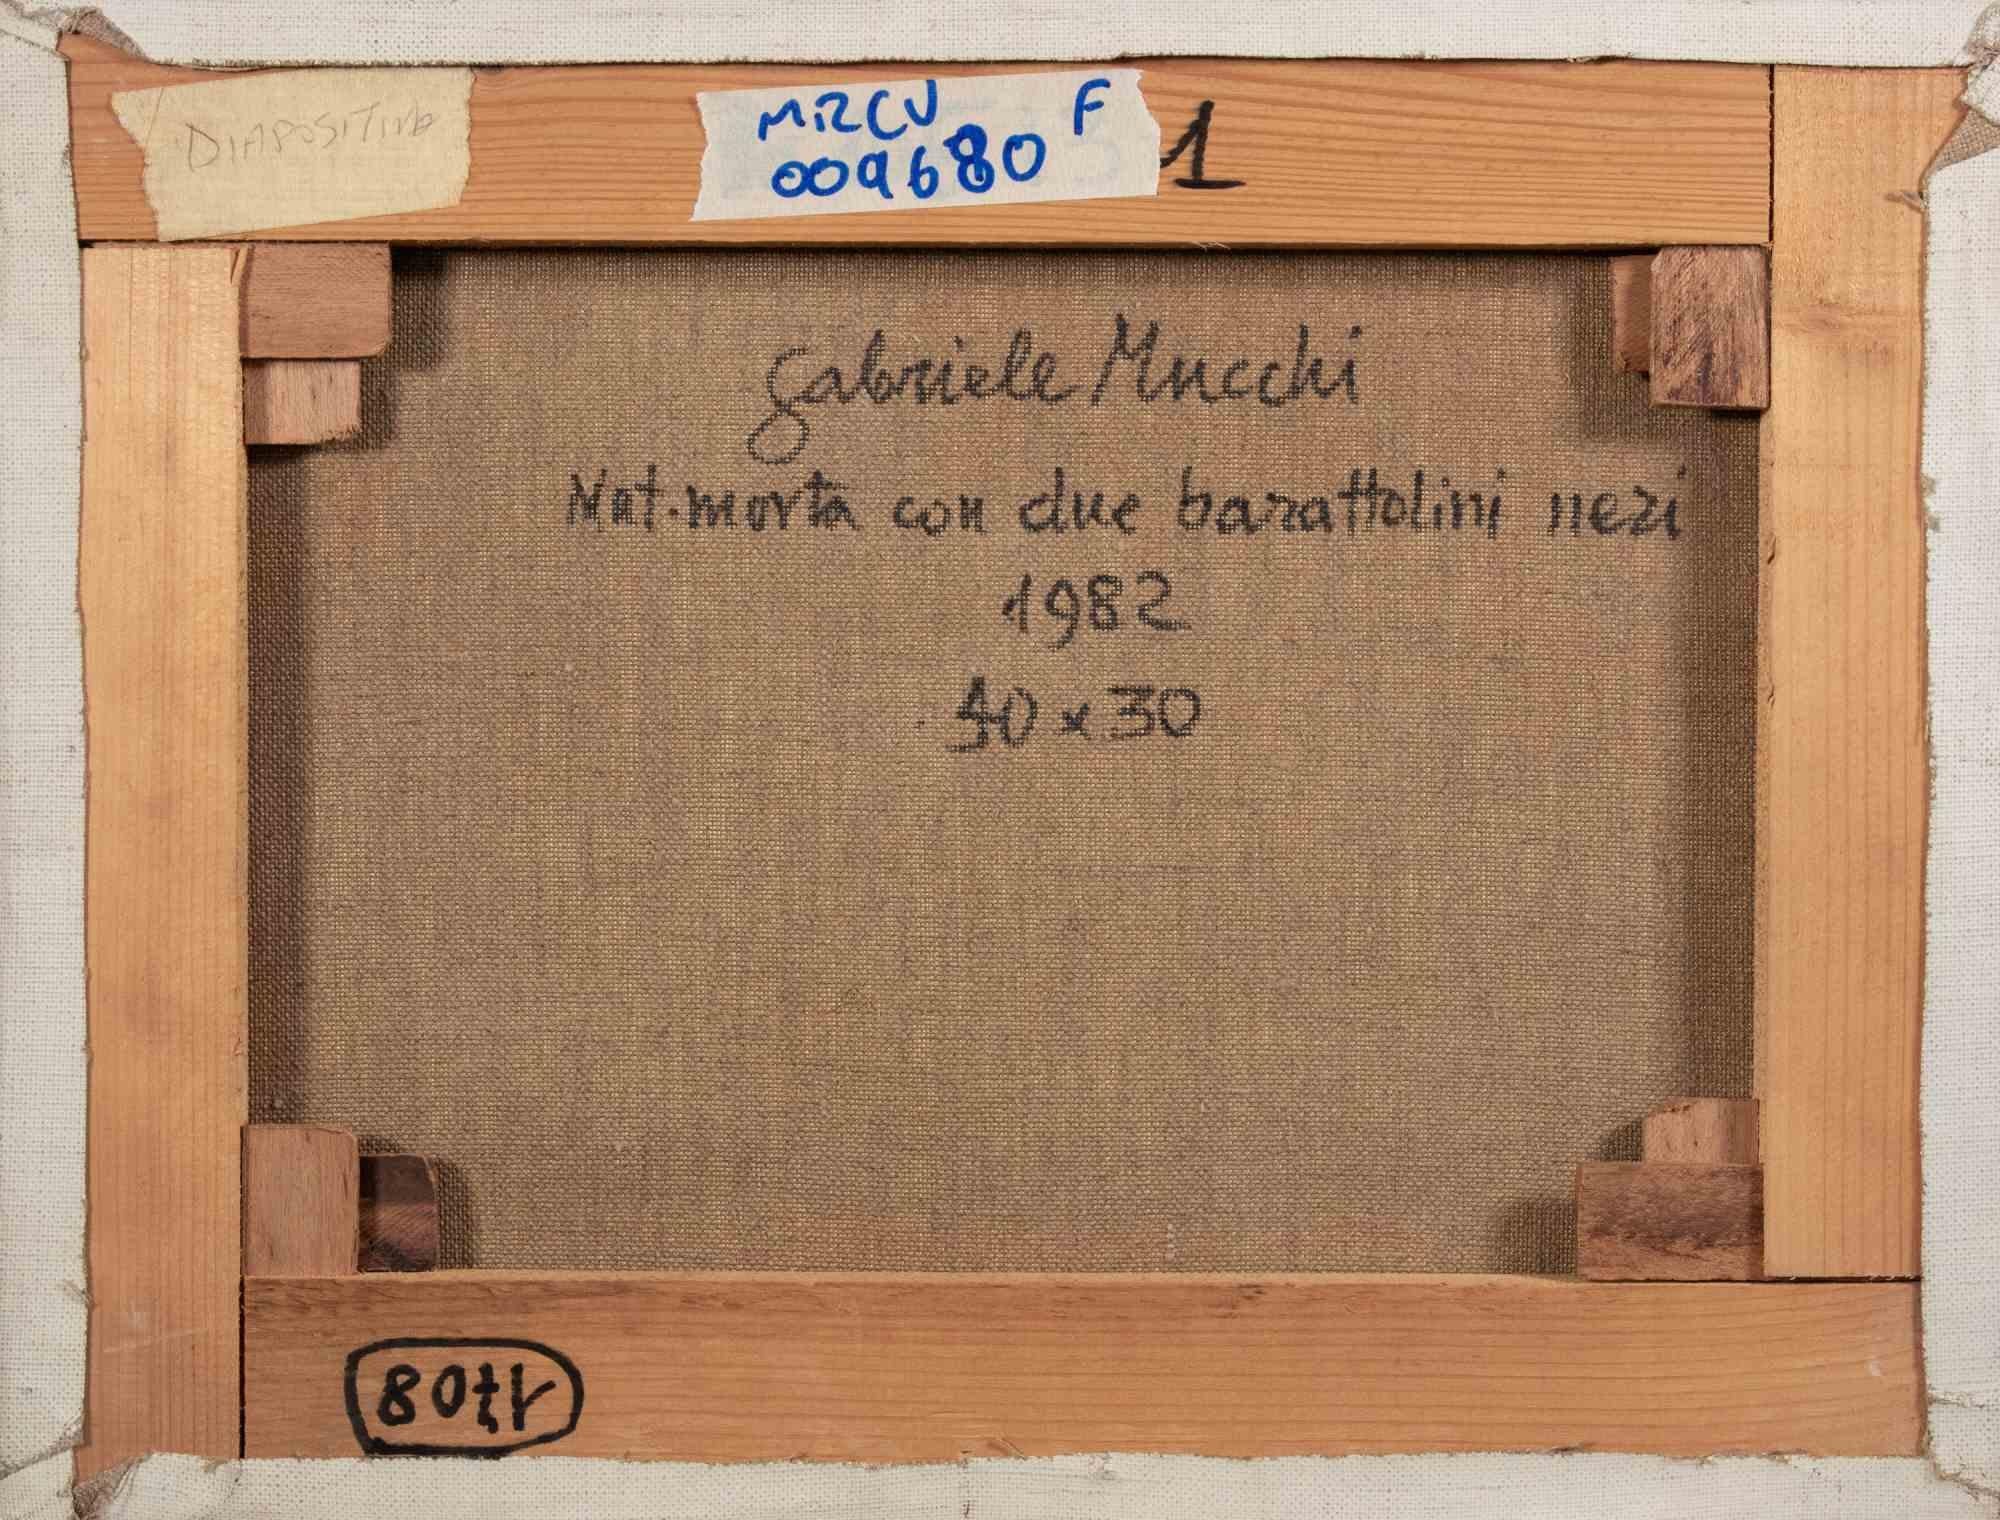 DIAPOSITIVA
MIRCV F
009680
1
Gabriele Mucchi
Nat. morta con due barattolini neri
1982
40 x 30
1708